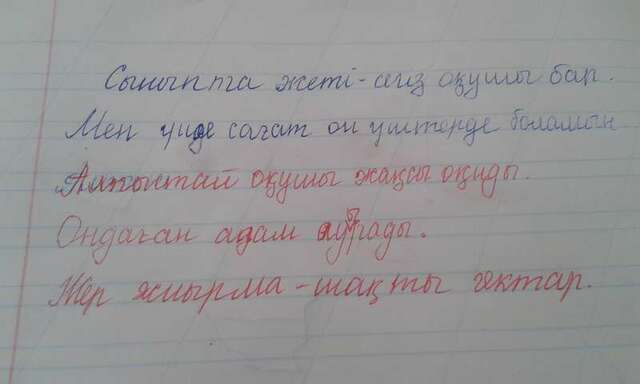 Сыныпта жеті-сегіз оқушы бар.
Мен үйде сағат он үштерде боламын
Алпыстай оқушы жақсы оқиды.
Ондаған адам ауырады.
Жер жиырма-шақты гектар.